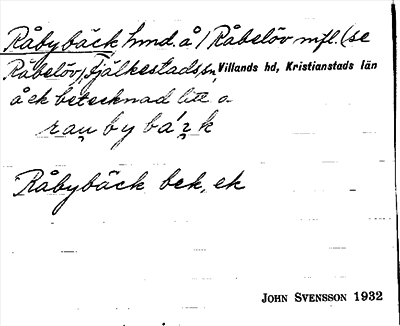 Råbybäck hmd. å / Råbelöv mfl. (se
Råbelöv) Fjälkestads sn, Villands hd, Kristianstads län
å ek betecknad litt a
Råbybäck bek, ek
JOHN SVENSSON 1932